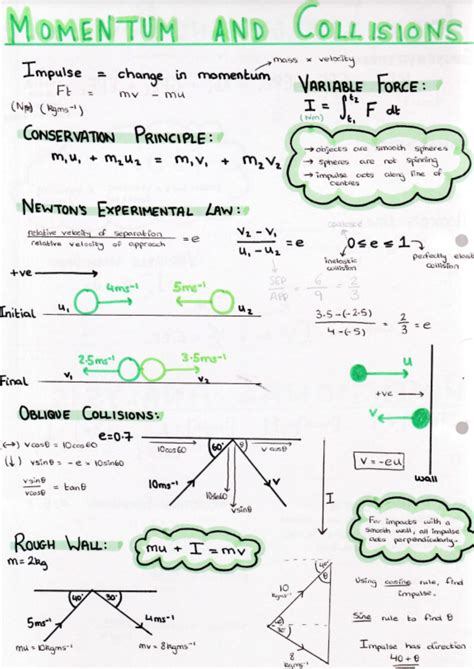 MOMENTUM AND COLLISIONS
Impulse = change in momentum
mass x velocity
Ft = mv - mu
(Ns) (kgms⁻¹)
VARIABLE FORCE:
I = ∫t₁t₂ F dt
(Nm)
CONSERVATION PRINCIPLE:
m₁u₁ + m₂u₂ = m₁v₁ + m₂v₂
→ objects are smooth spheres
→ spheres are not spinning
→ impulse acts along line of
centres
NEWTON'S EXPERIMENTAL LAW:
relative velocity of separation = e
relative velocity of approach
v₂ - v₁ = e
u₁ - u₂
coalesce
0 ≤ e ≤ 1
inelastic
collision
perfectly elast
collision
SEP = 6 = 2
APP 9 3
+ve
4ms⁻¹
5ms⁻¹
Initial u₁ u₂
3.5 - (-2.5) = 2 = e
4 - (-5) 3
2.5ms⁻¹
3.5ms⁻¹
Final v₁ v₂
u
+ve
v
v = -eu
wall
OBLIQUE COLLISIONS:
e = 0.7
(↔) vcosθ = 10cos60
(↓) vsinθ = -e × 10sin60
vsinθ = tanθ
vcosθ
10cos60
60°
θ
vcosθ
10ms⁻¹
10sin60
vsinθ
v
I
For impacts with a
smooth wall, all impulse
acts perpendicularly.
ROUGH WALL:
mu + I = mv
m = 2kg
40°
30°
5ms⁻¹
4ms⁻¹
mu = 10kgms⁻¹
mv = 8kgms⁻¹
40°
θ
10
kgms⁻¹
I
30°
8
kgms⁻¹
Using cosine rule, find
impulse.
Sine rule to find θ
Impulse has direction
40 + θ